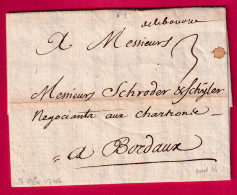 de libourne
3
A Messieurs
Messieurs Schroder & Schÿler
Negociants aux Chartrons
a Bordaux